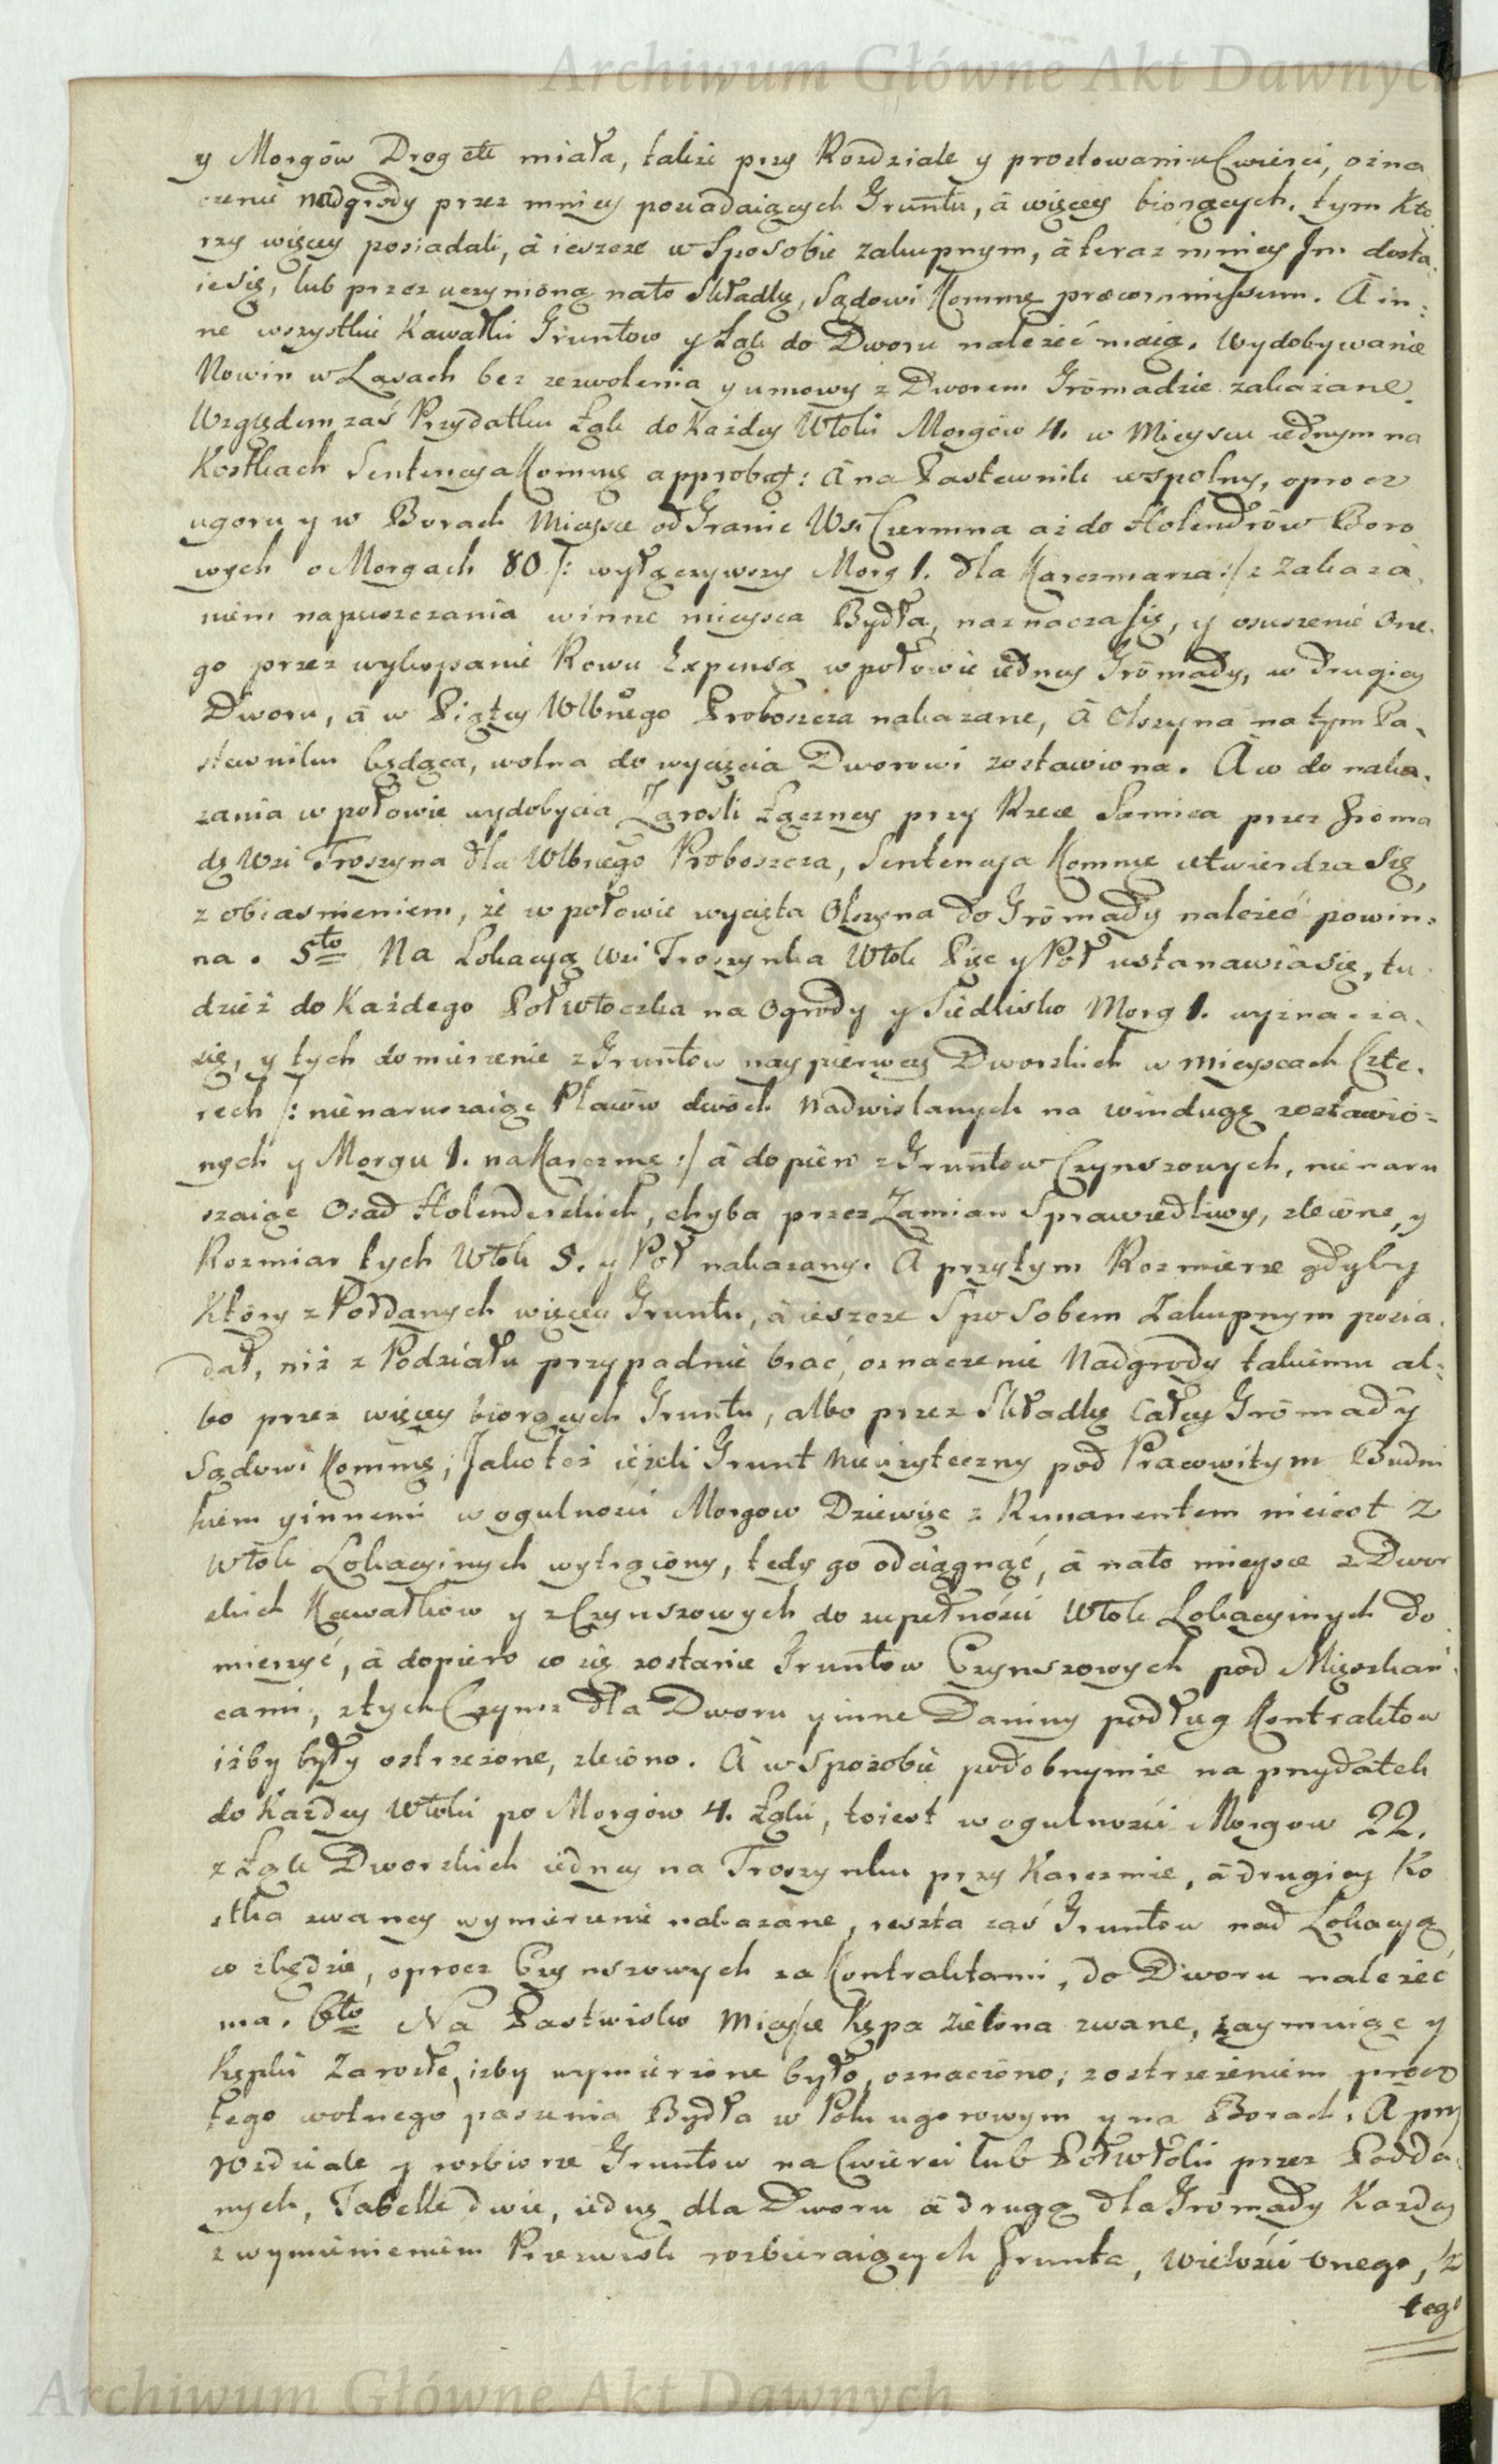 Archiwum Główne Akt Dawnych
y Morgów Drog etc miała, takze przy Rozdziale y prostowaniu Cwierci, ozna
czenie nadgrody przez mniey posiadaiących Gruntu, à więcey biorących, tym Kto
rzy więcey posiadali, à ieszcze w Sposobie zakupnym, à teraz mniey Jm dosta,
ie się, lub przez uczynioną nato Składkę, Sądowi Kommę præcommissum. A in=
ne wszystkie Kawałki Gruntow y Łąk do Dworu należeć maią. Wydobywanie
Nowin w Lasach bez zezwolenia y umowy z Dworem Grōmadzie zakazane.
Względem zaś Przydatku Łąk do Każdey Włoki Morgów 4. w Mieyscu iednym na
Kostkach Sentencya Kommę approbat: à na Pastewnik wspolny, oprocz
ugoru y w Borach Mieysce od Granic Wsi Czermna aż do Holendrów Boro
wych o Morgach 80 /: wyłączywszy Morg 1. dla Karczmarza :/ z Zakaza,
niem napuszczania w inne mieysca Bydła, naznacza się, y osuszenie One,
go przez wykopanie Rowu Expensą w połowie iedney Grōmady, w drugiey
Dworu, à w Piątey Wlbnego Proboszcza nakazane, à Olszyna na tym Pa,
stewniku będąca, wolna do wycięcia Dworowi zostawiona. A co do naka,
zania w połowie wydobycia Zarosli Łączney przy Rzece Samica przez Groma
dę Wsi Troszyna dla Wlbnego Proboszcza, Sentencya Kommę utwierdza Się,
z obiasnieniem, że w połowie wycięta Olszyna do Grōmady należeć powin=
na. 5to Na Lokacyą Wsi Troszynka Włok Pięc y Poł ustanawia się, tu
dzież do Każdego Połwłoczka na Ogrody y Siedlisko Morg 1. wyznacza,
się, y tych domierzenie z Gruntow naypierwey Dworskich w Mieyscach Czte,
rech /: nienaruszaiąc Pławów dwóch Nadwislanych na windugę zostawio=
nych y Morgu 1. na Karczmę :/ à dopiero z Gruntow Czynszowych, nienaru
szaiąc Osad Holenderskich, chyba przez Zamian Sprawiedliwy, zlecone, y
Rozmiar tych Włok 5. y Poł nakazany. A przytym Rozmierze gdyby
Który z Poddanych więcey Gruntu, à ieszcze Sposobem Zakupnym posia,
dał, niż z Podziału przypadnie brać, oznaczenie Nadgrody takiemu al=
bo przez więcey biorących Gruntu, albo przez Składkę całey Grōmady
Sądowi Kommę; Jako też ieżeli Grunt Nieużyteczny pod Pracowitym Budni
kiem y innemi w ogulności Morgow Dziewięc z Rumanentem nieiest z
Włok Lokacyinych wytrącony, tedy go odciągnąć, à nato mieysce z Dwor
skich Kawałkow y z Czynszowych do zupełności Włok Lokacyinych do
mierzyć, à dopiero co się zostanie Gruntow Czynszowych pod Mieszkań,
cami, z tych Czynsz dla Dworu y inne Daniny podług Kontraktow
iżby były ostrzeżone, zlecono. A w Sposobie podobnymże na przydatek
do Każdey Włoki po Morgów 4. Łąki, toiest w ogulności Morgow 22.
z Łąk Dworskich iedney na Troszynku przy Karczmie, à drugiey Ko
stka zwaney wymierzenie nakazane, reszta zaś Gruntow nad Lokacyą
co zbędzie, oprocz Czynszowych za Kontraktami, do Dworu należeć
ma. 6to Na Pastwisko Mieysce Kępa Zielona zwane, zaymuiąc y
Kępki Zarosłe, iżby wymierzone było, oznaczono; z ostrzeżeniem procz
tego wolnego pasienia Bydła w Polu ugorowym y na Borach. A przy
rozdziale y rozbiorze Gruntow na Cwierci lub Połwłoki przez Podda,
nych, Tabelle dwie, iednę dla Dworu à drugą dla Grōmady Każdey
z wymienieniem Przezwisk rozbieraiących Grunta, wielości Onego, z
tego
Archiwum Główne Akt Dawnych